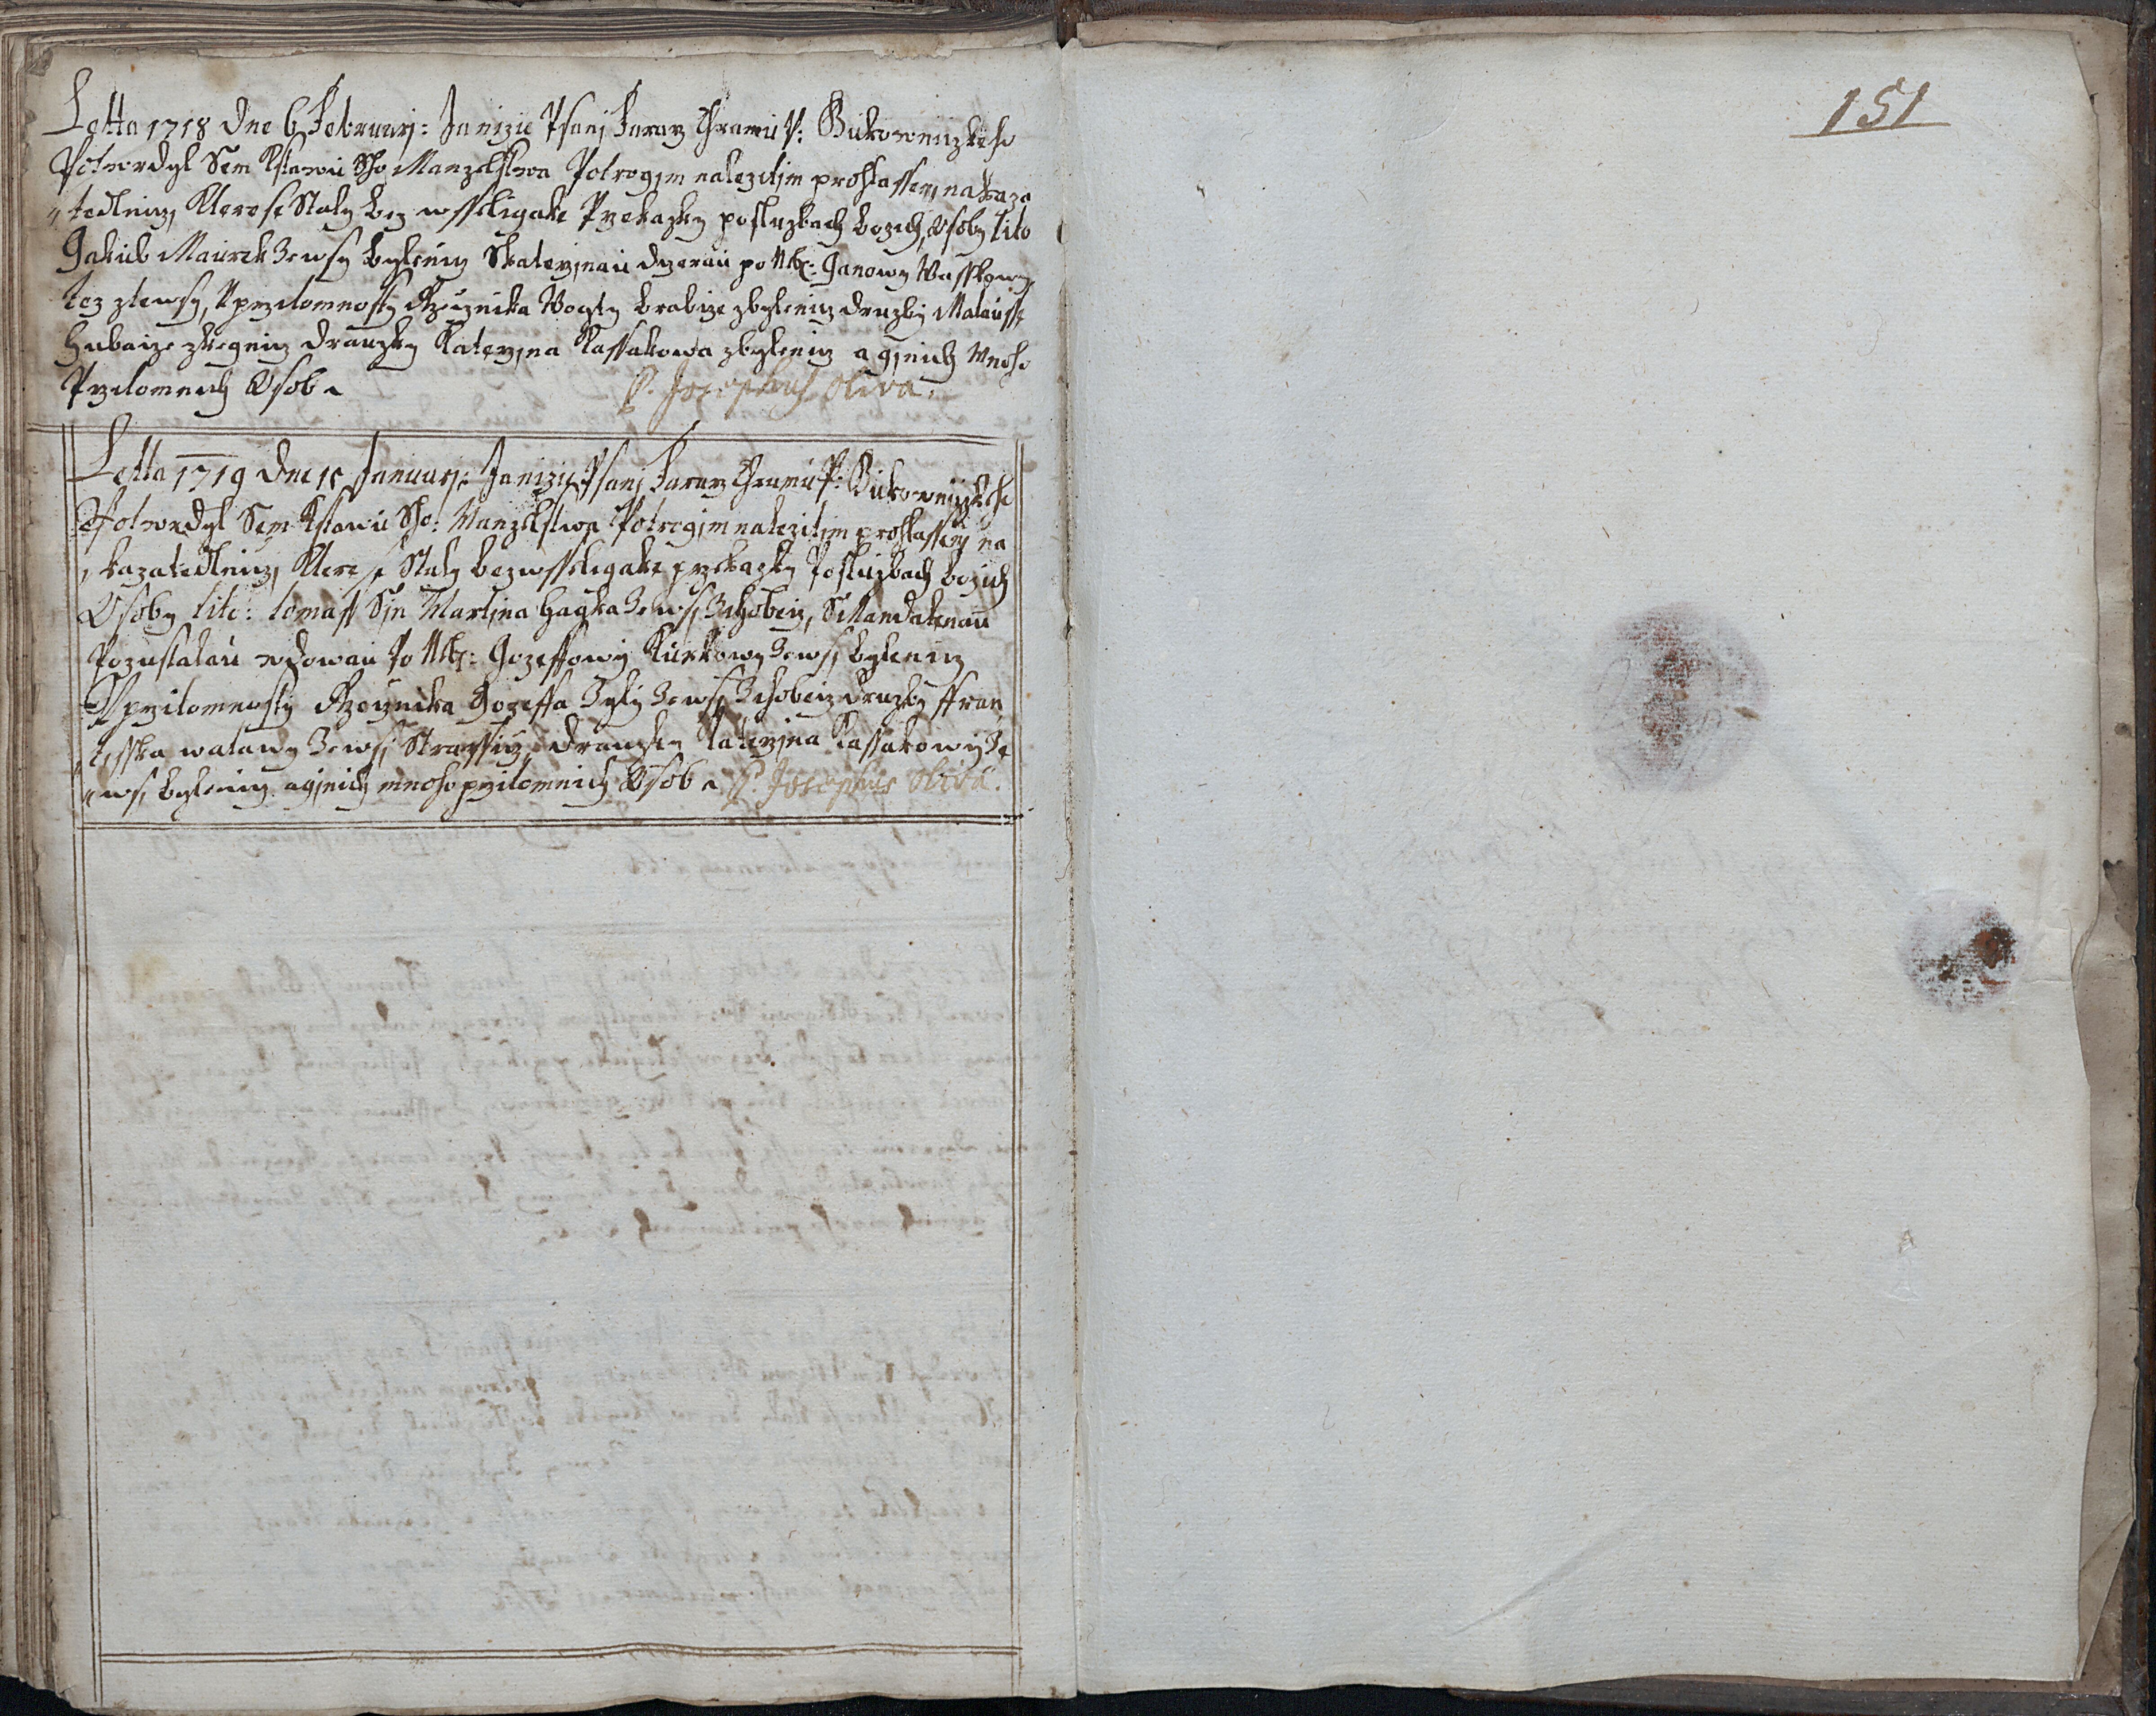 151
Letta 1718 dne 6 Februarj: Ja nizie Psanj Fararz Chramu P: Bukowenizkeho
Potwrdyl Sem Kstawu Sho Manzelstwa Potrogjm nalezitjm prohlassenj na kaza
tedlniczy Klere se Staly bez wsseligake Przekazky posluzbach bozich, Osoby tito
Gakub Maurek Zewsy bylenicz Skaterzjnau dczerau po Nb: Janowy Wasskowy
tez ztewsy, Przitomnosty Rzecznika Wogty brabcze zbylenicz druzby Matausse
hubaize druzky Katerzjna Kassakowa zbylenicz a gjnich Mnoho
Przitomnich Osob
P. Josephus Oliva
Letta 1719 dne 15 Januarj: Ja nizie Psanj Fararz Chramu P: Bukowenizkeho
Potwrdyl Sem Kstawu Sho: Manzelstwa Potrogjm nalezitjm prohlassenj na
kazatedlniczy Klere se Staly bez wsseligake przekazky Posluzbach bozich
Osoby tito: tomass Syn Martjna hagka Zewsy SMandalenau
Pozustalau wdowau Po Nb: Gozeffowy Kurkowy Zewsy bylenicz
Przitomnosty Rzecznika Gozeffa Zewsy druzby ffran
tisska watawy Zewsy Strassicz, druzky Katerzjna Kassakowy Ze
wsy bylenicz a gjnich mnoho przitomnich Osob P. Josephus Oliva.